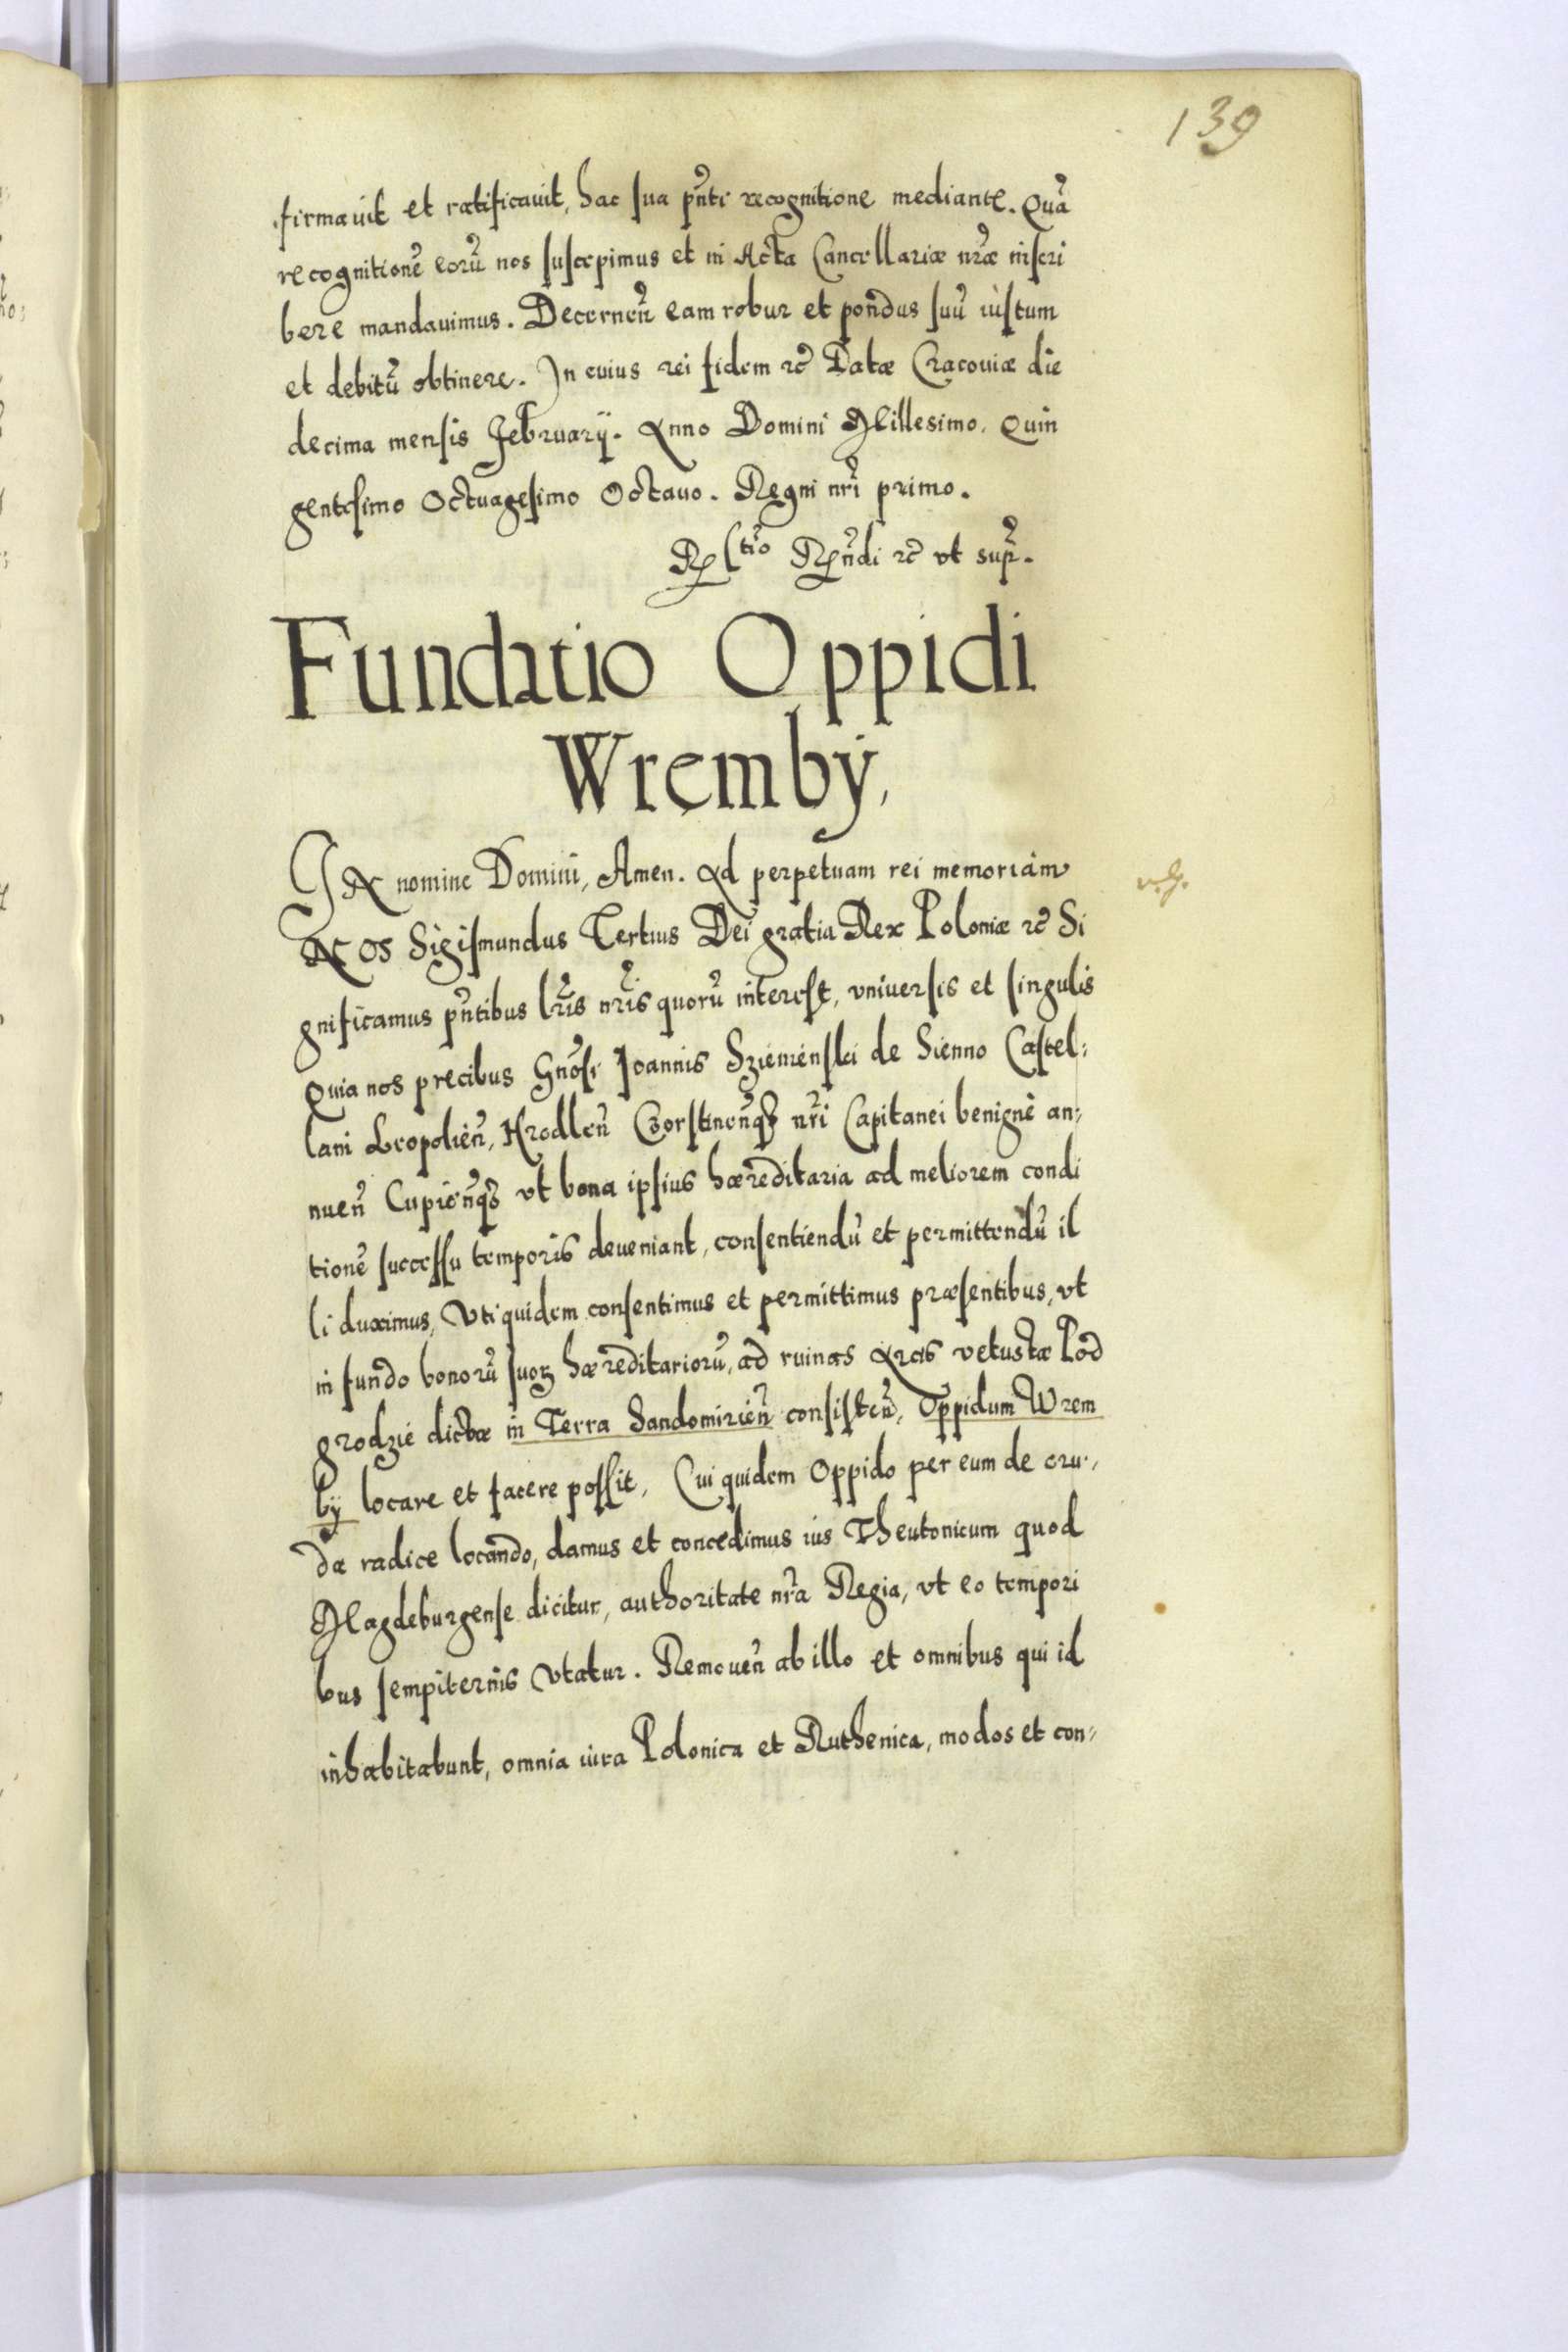 139
firmauit et ratificauit, hac sua pñti recognitione mediante. Quã
recognitionẽ eorũ nos suscepimus et in Acta Cancellariæ nr̃æ inscri
bere mandauimus. Decerneñ eam robur et pondus suũ iustum
et debitũ obtinere. In cuius rei fidem &c̃ Datæ Cracouiæ die
decima mensis February. Anno Domini Millesimo, Quin
gentesimo Octuagesimo Octauo. Regni nr̃i primo.
vt supr̃.
Fundatio Oppidi
Wremby,
IN nomine Domini, Amen. Ad perpetuam rei memoriam
NOS Sigismundus Tertius Dei gratia Rex Poloniæ &c̃ Si
gnificamus pñtibus lr̃is nr̃is quorũ interest, vniuersis et singulis
Quia nos precibus Gñosi Joannis Sziemienski de Sienno Castel:
lani Leopolieñ, Hrodleñ Czorstineñqꝫ nr̃i Capitanei benignè an:
nueñ Cupieñqꝫ vt bona ipsius hæreditaria ad meliorem condi
tionẽ successu temporis deueniant, consentiendũ et permittendũ il
li duximus, Vti quidem consentimus et permittimus præsentibus, vt
in fundo bonorũ suoꝝ hæreditariorũ, ad ruinas Arcis vetustæ Pod
grodzie dictæ in Terra Sandomirieñ consisteñ, Oppidum Wrem
by locare et facere possit, Cui quidem Oppido per eum de cru:
da radice locando, damus et concedimus ius Theutonicum quod
Magdeburgense dicitur, authoritate nr̃a Regia, vt eo tempori
bus sempiternis vtatur. Remoueñ ab illo et omnibus qui id
inhabitabunt, omnia iura Polonica et Ruthenica, modos et con: